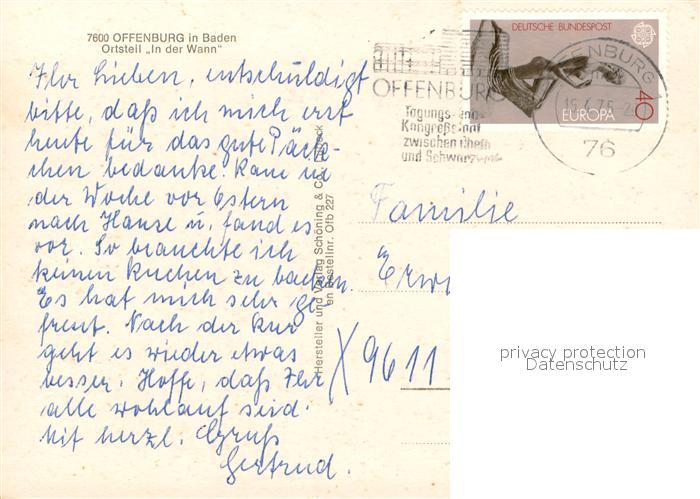 7600 OFFENBURG in Baden
Ortsteil „In der Wann"
Ihr Lieben, entschuldigt
bitte, daß ich mich erst
heute für das gute Päck-
chen bedanke. Kam in
der Woche vor Ostern
nach Hause u. fand es
vor. So brauchte ich
keinen Kuchen zu backen.
Es hat mich sehr ge
freut. Nach der Kur
geht es wieder etwas
besser. Hoffe, daß Ihr
alle wohlauf seid.
Mit herzl. Gruß
Gertrud.
Hersteller und Verlag Schöning & Co
Bestellnr. Ofb 227
DEUTSCHE BUNDESPOST
EUROPA
40
OFFENBURG
Tagungs- und
Kongreßstadt
zwischen Rhein
und Schwarzwald
OFFENBURG
76
Familie
Erw
X 9611
privacy protection
Datenschutz